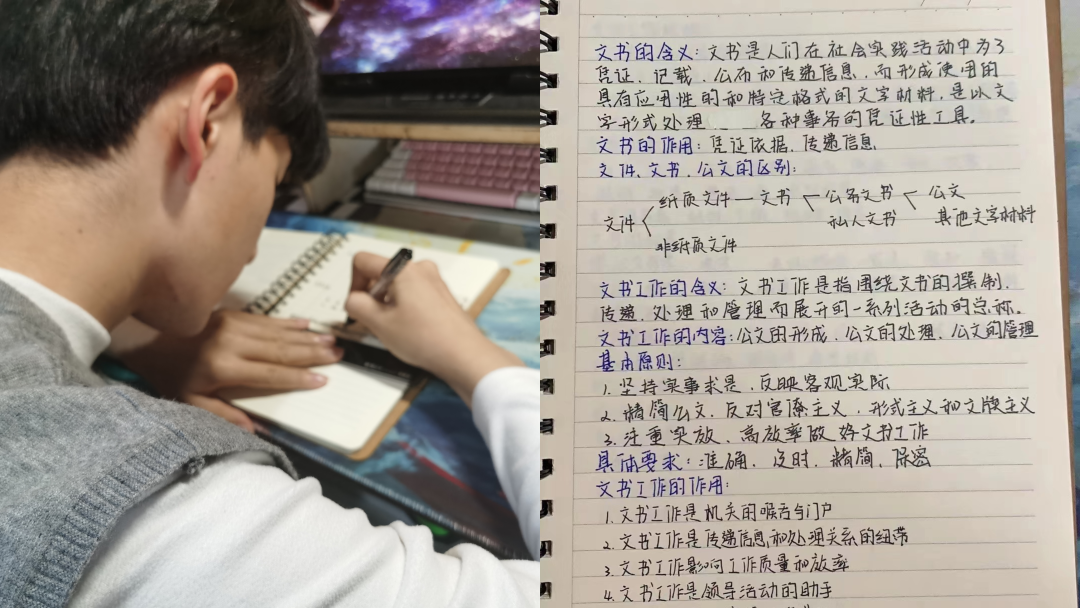 文书的含义：文书是人们在社会实践活动中为了
凭证、记载、公布和传递信息，而形成使用的
具有应用性的和特定格式的文字材料，是以文
字形式处理 各种事务的凭证性工具。
文书的作用：凭证依据、传递信息
文件、文书、公文的区别：
文件 纸质文件—文书 公务文书 公文
私人文书 其他文字材料
非纸质文件
文书工作的含义：文书工作是指围绕文书的撰制、
传递、处理和管理而展开的一系列活动的总称。
文书工作的内容：公文的形成、公文的处理、公文的管理
基本原则：
1. 坚持实事求是、反映客观实际
2. 精简公文、反对官僚主义、形式主义和文牍主义
3. 注重实效、高效率做好文书工作
具体要求：准确、及时、精简、保密
文书工作的作用：
1. 文书工作是机关的喉舌与门户
2. 文书工作是传递信息和处理关系的纽带
3. 文书工作影响工作质量和效率
4. 文书工作是领导活动的助手